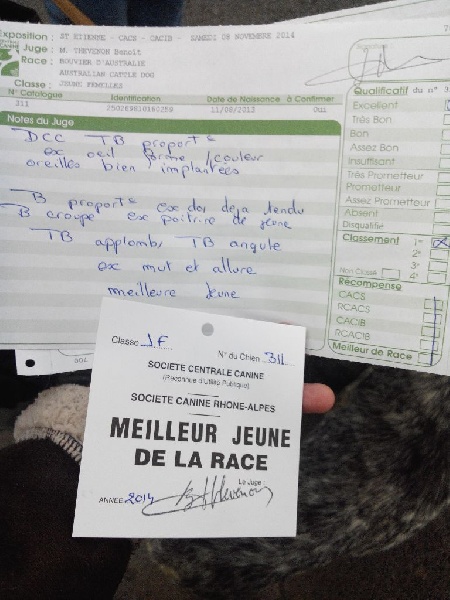 Exposition : ST ETIENNE - CACS - CACIB - SAMEDI 08 NOVEMBRE 2014
Juge : M. THEVENON Benoit
Race : BOUVIER D'AUSTRALIE
AUSTRALIAN CATTLE DOG
Classe : JEUNE FEMELLES
N° Catalogue Identification Date de Naissance à Confirmer
311 250269810160259 11/09/2013 Oui
Notes du Juge
DCC TB proport°
ex oeil forme / couleur
oreilles bien implantées
B proport° ex dos déjà tendu
B croupe ex poitrine de jeune
TB applombs TB angule
ex mvt et allure
meilleure jeune
Qualificatif du n° 3
Excellent
Très Bon
Bon
Assez Bon
Insuffisant
Très Prometteur
Prometteur
Assez Prometteur
Absent
Disqualifié
Classement 1er
2e
3e
Non Classé 4e
Récompense
CACS
RCACS
CACIB
RCACIB
Meilleur de Race
Classe J.F N° du Chien 311
SOCIETE CENTRALE CANINE
(Reconnue d'Utilité Publique)
SOCIETE CANINE RHONE-ALPES
MEILLEUR JEUNE
DE LA RACE
Le Juge
ANNEE 2014